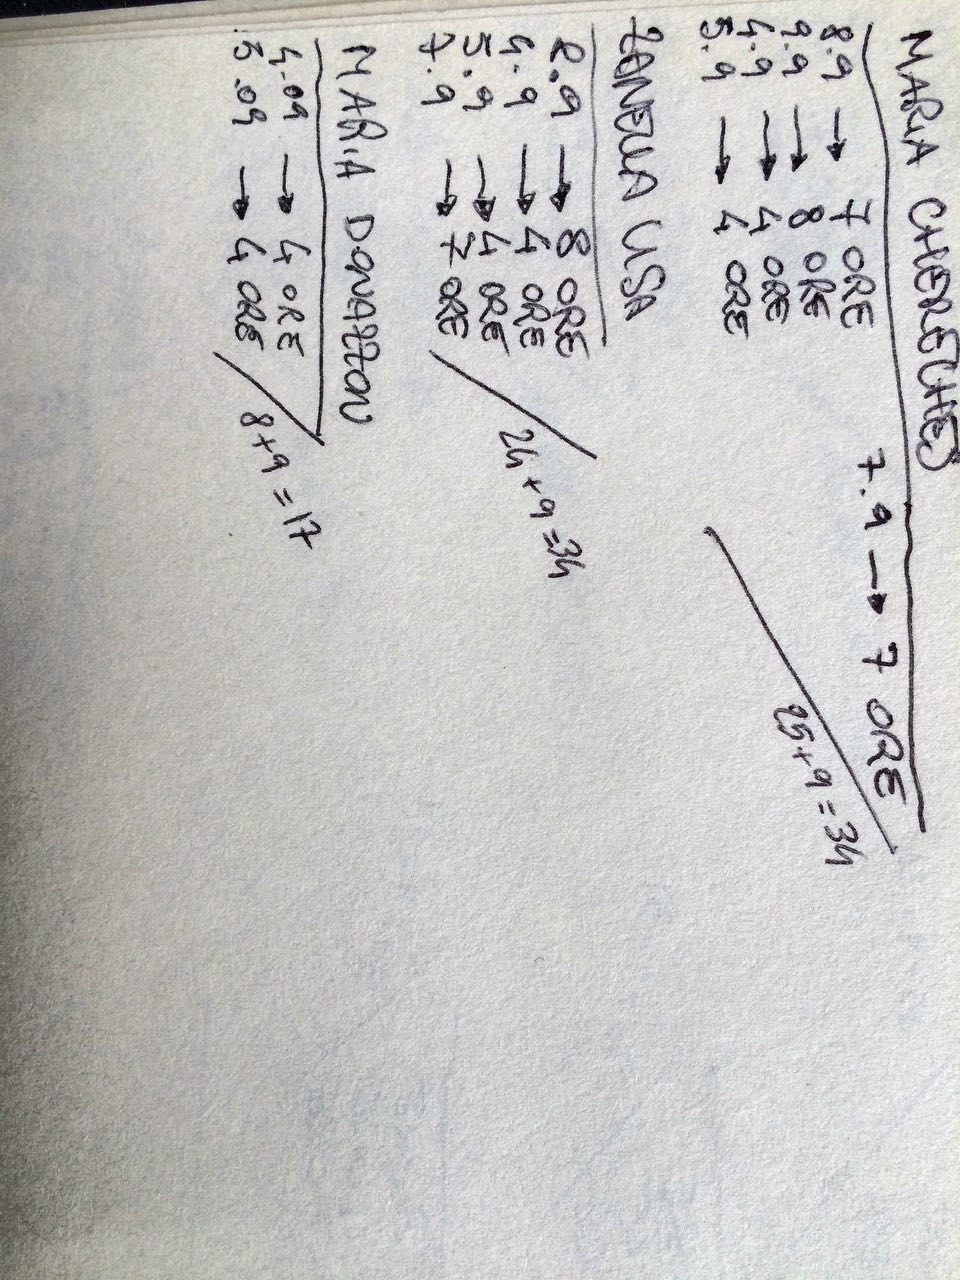 MARIA CHERECHES
8.9 → 7 ORE 7.9 → 7 ORE
9.9 → 8 ORE
4.9 → 4 ORE
5.9 → 4 ORE
25+9=34
ZANELLA LISA
8.9 → 8 ORE
4.9 → 4 ORE
5.9 → 4 ORE
7.9 → 7 ORE
24+9=34
MARIA DONAZZON
4.09 → 4 ORE
5.09 → 4 ORE
8+9=17